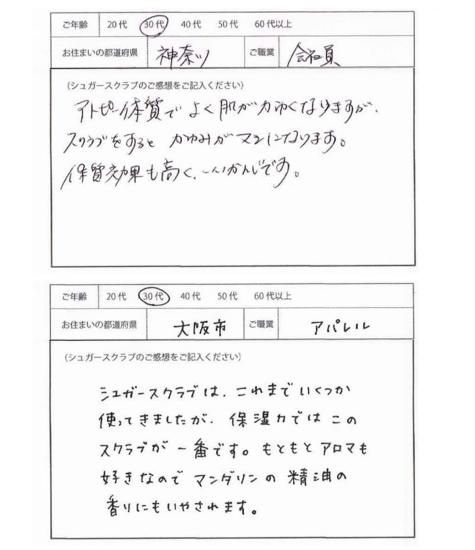 ご年齢 20代 30代 40代 50代 60代以上
お住まいの都道府県 神奈川 ご職業 会社員
(シュガースクラブのご感想をご記入ください)
アトピー体質でよく肌がカユくなりますが、
スクラブをすると かゆみがマシになります。
保質効果も高く、いいかんじです。
ご年齢 20代 30代 40代 50代 60代以上
お住まいの都道府県 大阪市 ご職業 アパレル
(シュガースクラブのご感想をご記入ください)
シュガースクラブは、これまでいくつか
使ってきましたが、保湿力ではこの
スクラブが一番です。もともとアロマも
好きなので マンダリンの精油の
香りにもいやされます。